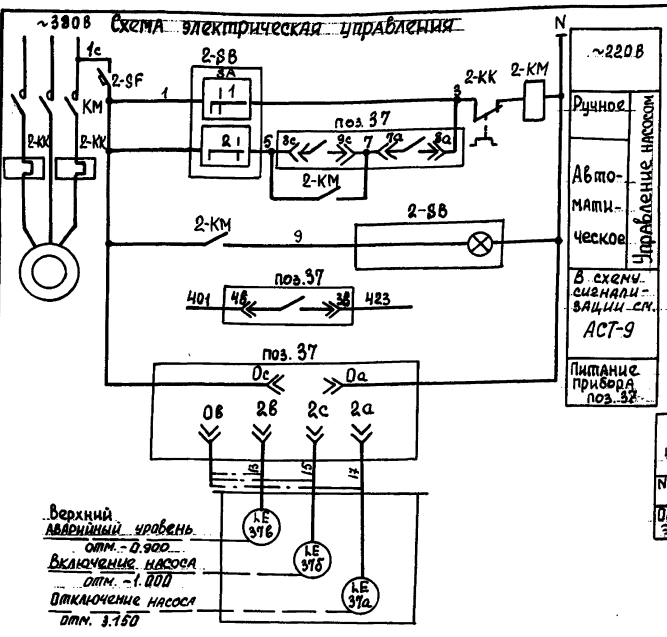 ~380В
Схема электрическая управления
N
1с
2-SF
2-SB
SA
1
1
3
2-КК
2-КМ
КМ
2-КК
2-КК
2
5
поз. 37
8с
9с
7
7а
8а
2-КМ
2-КМ
9
2-SB
поз.37
401
4в
3в
423
поз. 37
0с
0а
0в
2в
2с
2а
13
15
17
Верхний
аварийный уровень
отм. -0.900
Включение насоса
отм. -1.000
Отключение насоса
отм. 3.150
LE
37в
LE
37б
LE
37а
~220В
Ручное
Авто-
мати-
ческое
Управление насосом
В схему
сигнали-
зации см.
АСТ-9
Питание
прибора
поз. 37
N